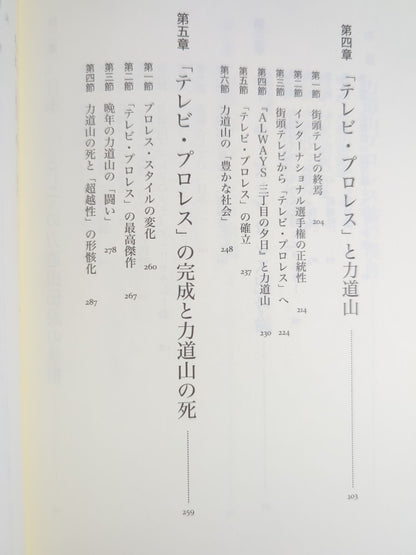 第四章 「テレビ・プロレス」と力道山 203
第一節 街頭テレビの終焉 204
第二節 インターナショナル選手権の正統性 214
第三節 街頭テレビから「テレビ・プロレス」へ 224
第四節 『ALWAYS 三丁目の夕日』と力道山 230
第五節 「テレビ・プロレス」の確立 237
第六節 力道山の「豊かな社会」 248
第五章 「テレビ・プロレス」の完成と力道山の死 259
第一節 プロレス・スタイルの変化 260
第二節 「テレビ・プロレス」の最高傑作 267
第三節 晩年の力道山の「闘い」 278
第四節 力道山の死と「超越性」の形骸化 287